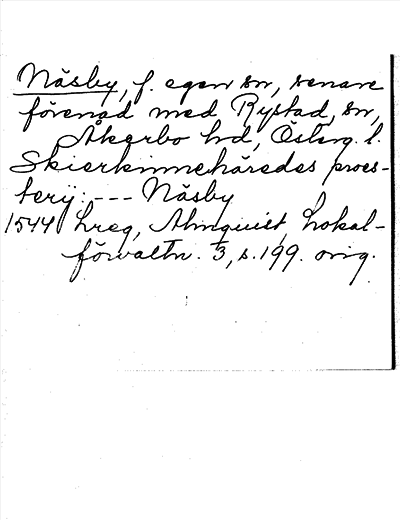 Näsby, f. egen sn, senare
förenad med Rystad, sn,
Åkerbo hd, Österg. l.
Skierkinnehäredes proes-
terij: --- Näsby
1544 hreg, Almquist, Lokal-
förvaltn. 3, s. 199. orig.